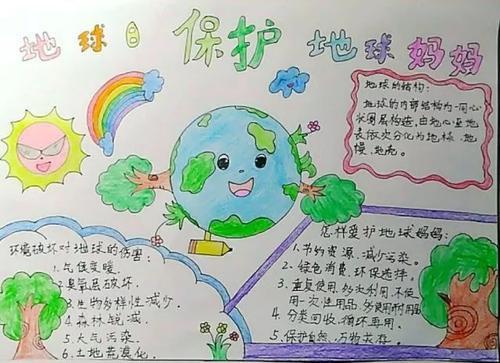 地球日 保护 地球妈妈
地球的结构:
地球的内部结构为一同心
状圈层构造,由地心至地
表依次分化为地核、地
慢、地壳。
环境破坏对地球的伤害:
1.气候变暖.
2.臭氧层破坏.
3.生物多样性减少.
4.森林锐减.
5.大气污染.
6.土地荒漠化.
怎样爱护地球妈妈:
1.节约资源,减少污染。
2.绿色消费,环保选择。
3.重复使用,多次利用,不使
用一次性用品,多使用耐用品
4.分类回收,循环再用。
5.保护自然,万物共存。